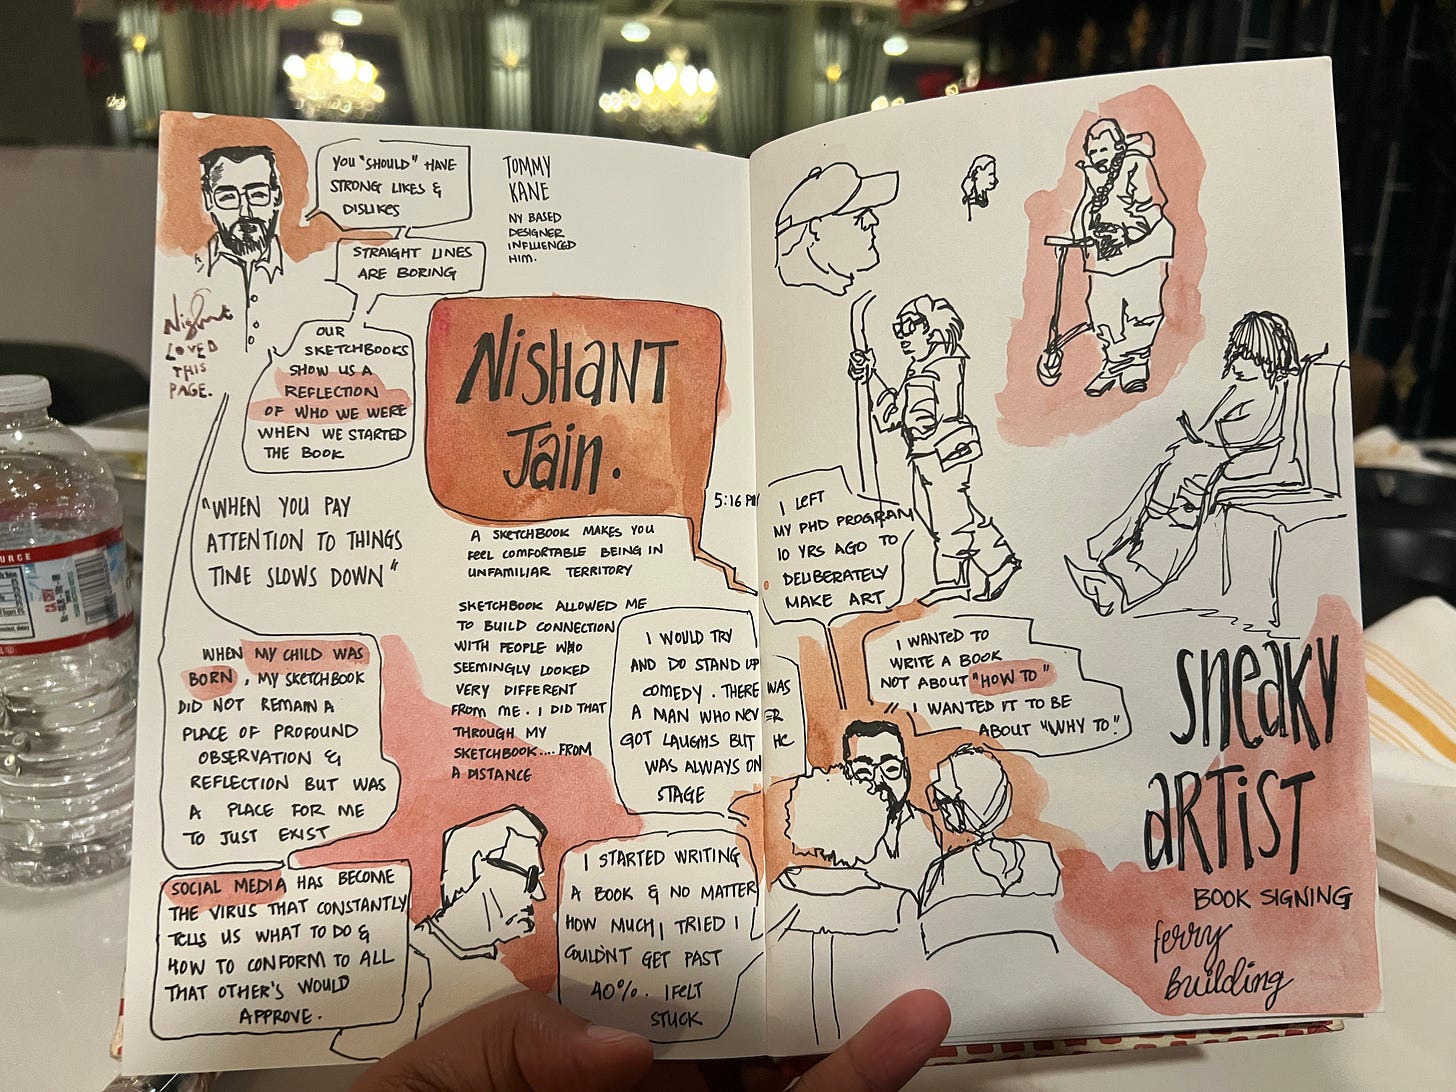 YOU "SHOULD" HAVE
STRONG LIKES &
DISLIKES
STRAIGHT LINES
ARE BORING
TOMMY
KANE
NY BASED
DESIGNER
INFLUENCED
HIM.
Nishant
LOVED
THIS
PAGE.
OUR
SKETCHBOOKS
SHOW US A
REFLECTION
OF WHO WE WERE
WHEN WE STARTED
THE BOOK
NISHANT
Jain.
"WHEN YOU PAY
ATTENTION TO THINGS
TIME SLOWS DOWN"
5:16 PM
A SKETCHBOOK MAKES YOU
FEEL COMFORTABLE BEING IN
UNFAMILIAR TERRITORY
SKETCHBOOK ALLOWED ME
TO BUILD CONNECTION
WITH PEOPLE WHO
SEEMINGLY LOOKED
VERY DIFFERENT
FROM ME. I DID THAT
THROUGH MY
SKETCHBOOK.... FROM
A DISTANCE
WHEN MY CHILD WAS
BORN, MY SKETCHBOOK
DID NOT REMAIN A
PLACE OF PROFOUND
OBSERVATION &
REFLECTION BUT WAS
A PLACE FOR ME
TO JUST EXIST
SOCIAL MEDIA HAS BECOME
THE VIRUS THAT CONSTANTLY
TELLS US WHAT TO DO &
HOW TO CONFORM TO ALL
THAT OTHER'S WOULD
APPROVE.
I WOULD TRY
AND DO STAND UP
COMEDY. THERE WAS
A MAN WHO NEVER
GOT LAUGHS BUT HE
WAS ALWAYS ON
STAGE
I STARTED WRITING
A BOOK & NO MATTER
HOW MUCH I TRIED I
COULDN'T GET PAST
40%. I FELT
STUCK
I LEFT
MY PHD PROGRAM
10 YRS AGO TO
DELIBERATELY
MAKE ART
I WANTED TO
WRITE A BOOK
NOT ABOUT "HOW TO"
I WANTED IT TO BE
ABOUT "WHY TO".
sneaky
aRTiST
BOOK SIGNING
ferry
Building